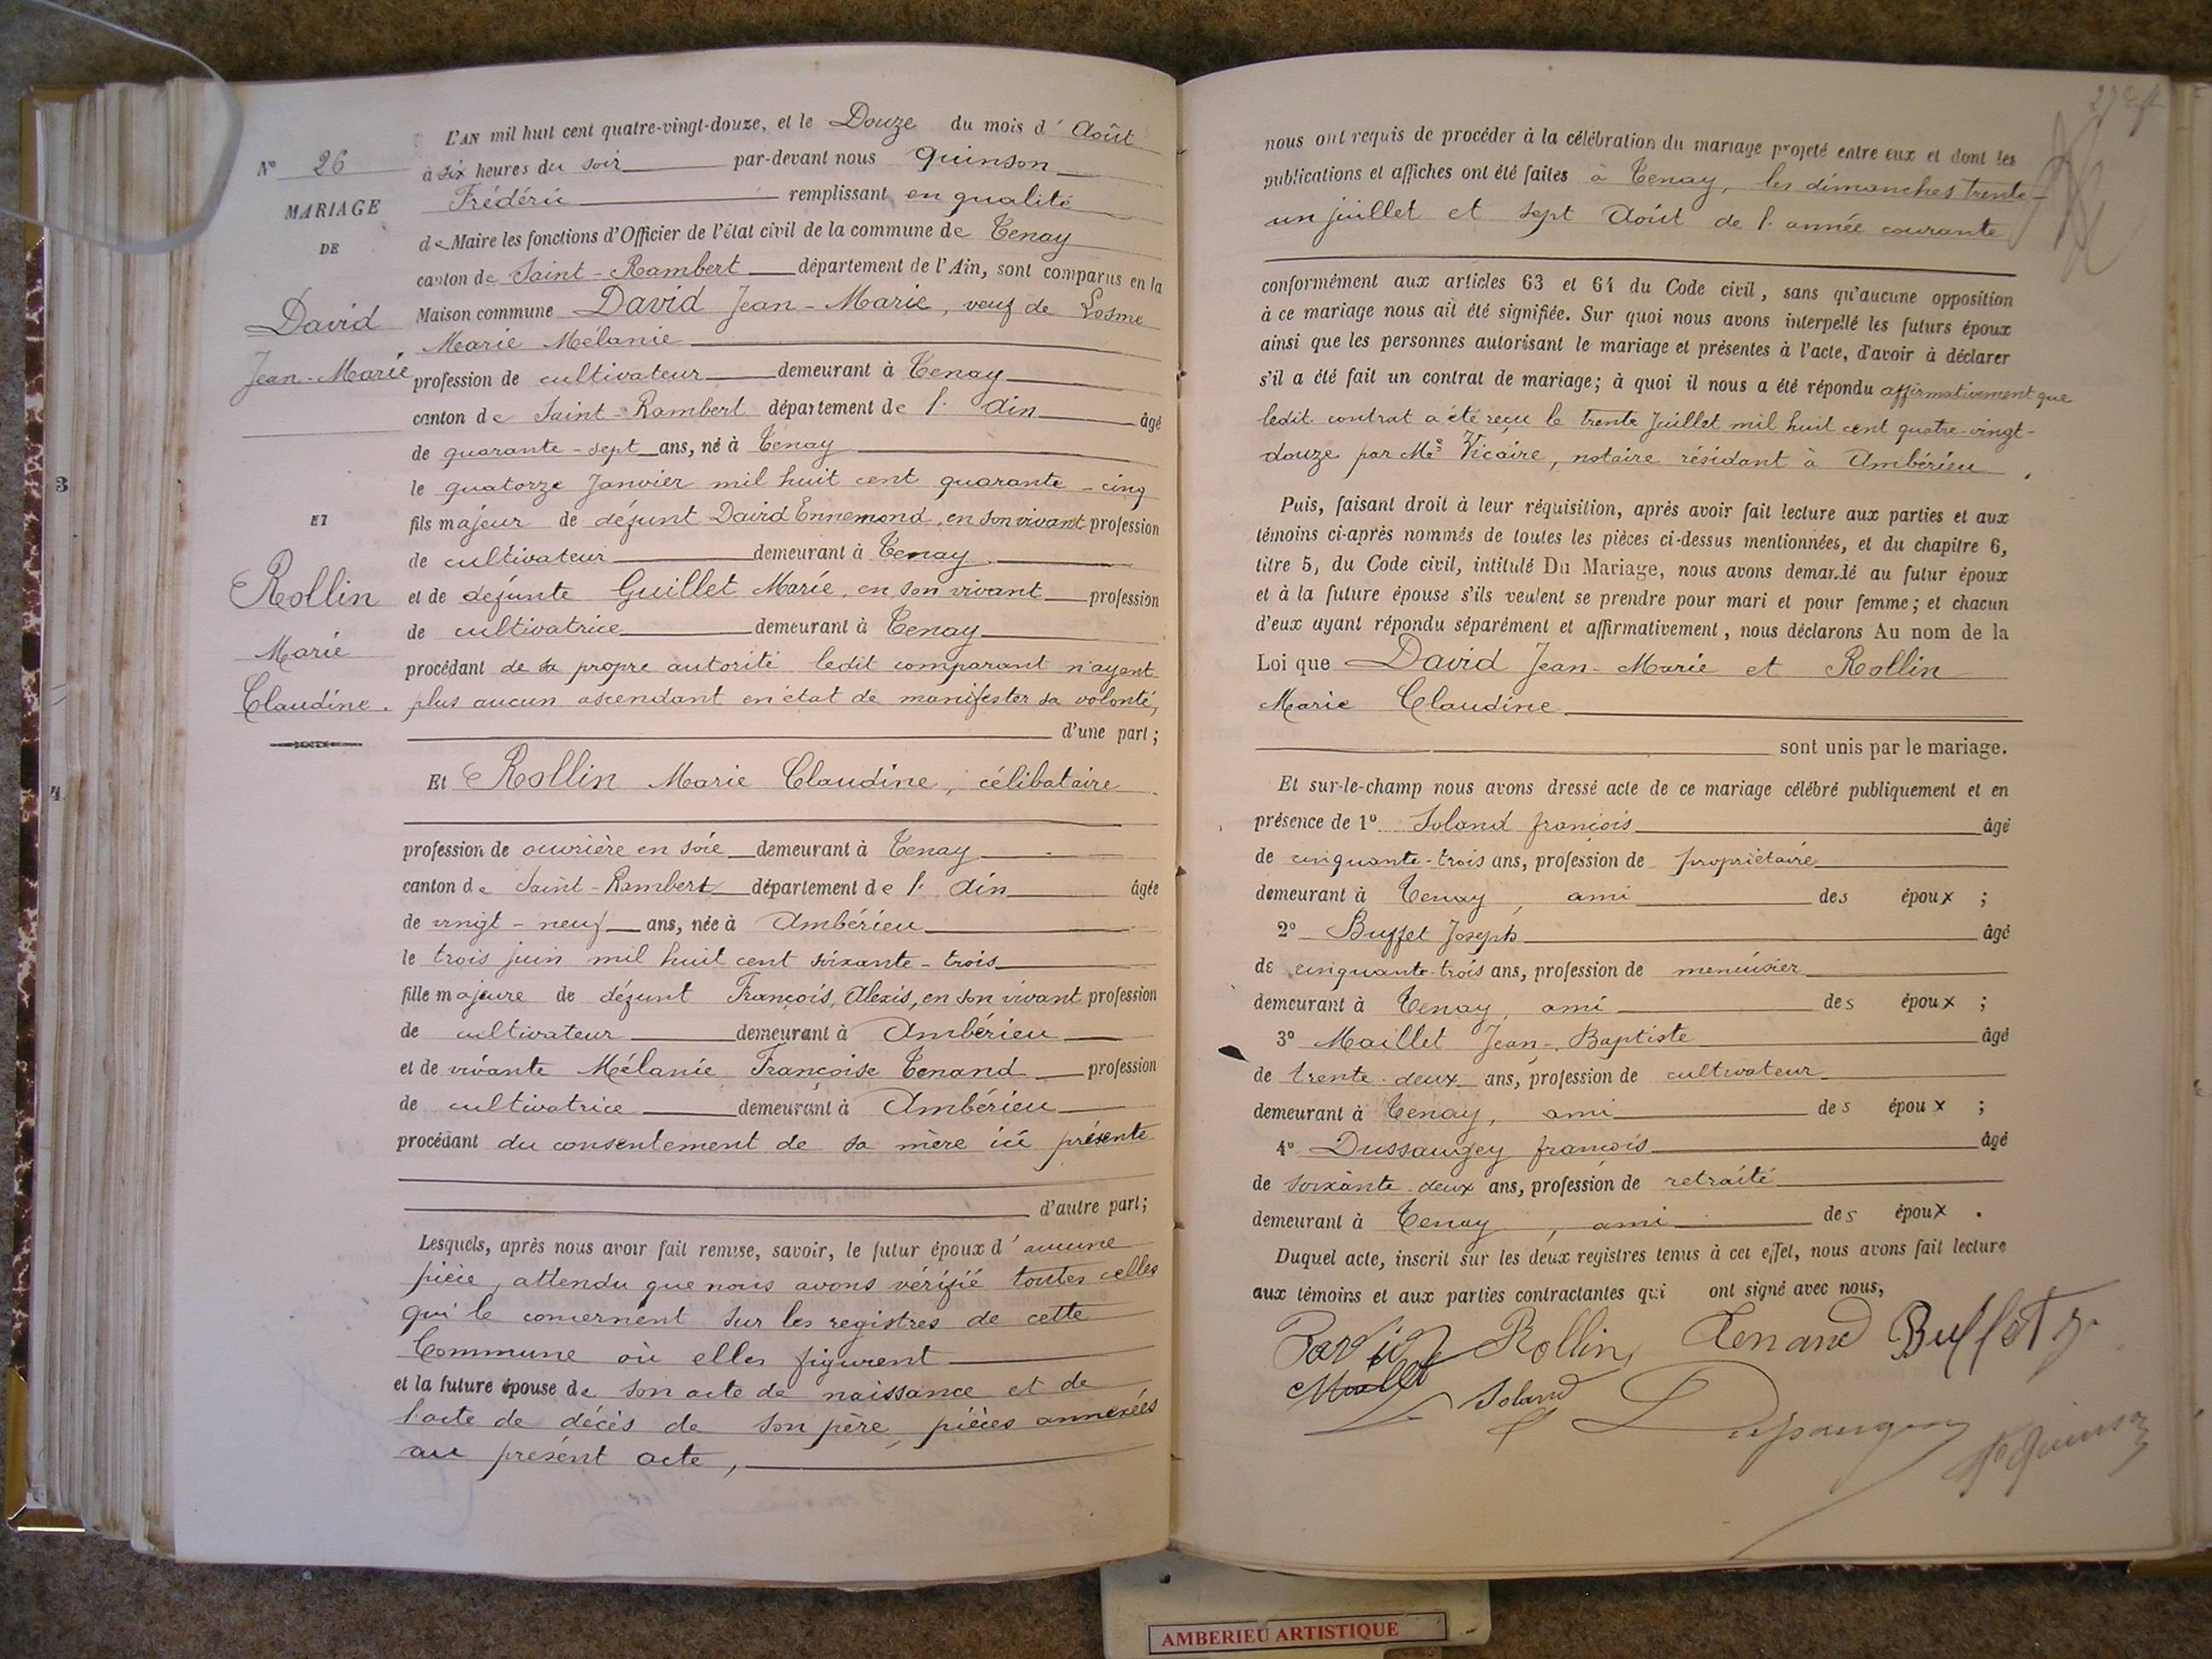 L'AN mil huit cent quatre-vingt-douze, et le Douze du mois d'Août
N° 26
à six heures du soir par-devant nous Quinson
Frédéric remplissant en qualité
MARIAGE
DE
de Maire les fonctions d'Officier de l'état civil de la commune de Tenay
canton de Saint-Rambert département de l'Ain, sont comparus en la
David
Maison commune David Jean-Marie, veuf de Losme
Marie Mélanie
Jean-Marie
profession de cultivateur demeurant à Tenay
canton de Saint-Rambert département de l'Ain âgé
de quarante-sept ans, né à Tenay
le quatorze Janvier mil huit cent quarante-cinq
ET
fils majeur de défunt David Ennemond, en son vivant profession
de cultivateur demeurant à Tenay
Rollin
et de défunte Guillet Marie, en son vivant profession
de cultivatrice demeurant à Tenay
Marie
procédant de sa propre autorité ledit comparant n'ayant
Claudine.
plus aucun ascendant en état de manifester sa volonté,
d'une part;
Et Rollin Marie Claudine, célibataire
profession de ouvrière en soie demeurant à Tenay
canton de Saint-Rambert département de l'Ain âgée
de vingt-neuf ans, née à Ambérieu
le trois juin mil huit cent soixante-trois
fille majeure de défunt François, Alexis, en son vivant profession
de cultivateur demeurant à Ambérieu
et de vivante Mélanie Françoise Tenand profession
de cultivatrice demeurant à Ambérieu
procédant du consentement de sa mère ici présente
d'autre part;
Lesquels, après nous avoir fait remise, savoir, le futur époux d'aucune
pièce, attendu que nous avons vérifié toutes celles
qui le concernent sur les registres de cette
Commune où elles figurent
et la future épouse de son acte de naissance et de
l'acte de décès de son père, pièces annexées
au présent acte,
nous ont requis de procéder à la célébration du mariage projeté entre eux et dont les
publications et affiches ont été faites à Tenay, les dimanches trente-
un juillet et sept Août de l'année courante
conformément aux articles 63 et 64 du Code civil, sans qu'aucune opposition
à ce mariage nous ait été signifiée. Sur quoi nous avons interpellé les futurs époux
ainsi que les personnes autorisant le mariage et présentes à l'acte, d'avoir à déclarer
s'il a été fait un contrat de mariage; à quoi il nous a été répondu affirmativement que
ledit contrat a été reçu le trente Juillet mil huit cent quatre-vingt-
douze par Me Vicaire, notaire résidant à Ambérieu,
Puis, faisant droit à leur réquisition, après avoir fait lecture aux parties et aux
témoins ci-après nommés de toutes les pièces ci-dessus mentionnées, et du chapitre 6,
titre 5, du Code civil, intitulé Du Mariage, nous avons demandé au futur époux
et à la future épouse s'ils veulent se prendre pour mari et pour femme; et chacun
d'eux ayant répondu séparément et affirmativement, nous déclarons Au nom de la
Loi que David Jean-Marie et Rollin
Marie Claudine
sont unis par le mariage.
Et sur-le-champ nous avons dressé acte de ce mariage célébré publiquement et en
présence de 1° Soland françois âgé
de cinquante-trois ans, profession de propriétaire
demeurant à Tenay, ami des époux ;
2° Buffet Joseph âgé
de cinquante-trois ans, profession de menuisier
demeurant à Tenay, ami des époux ;
3° Maillet Jean-Baptiste âgé
de trente-deux ans, profession de cultivateur
demeurant à Tenay, ami des époux ;
4° Dussaugey françois âgé
de soixante-deux ans, profession de retraité
demeurant à Tenay, ami des époux .
Duquel acte, inscrit sur les deux registres tenus à cet effet, nous avons fait lecture
aux témoins et aux parties contractantes qui ont signé avec nous,
David Rollin Tenand Buffet J.
Maillet Soland Dussaugey Quinson
3
4
AMBERIEU ARTISTIQUE